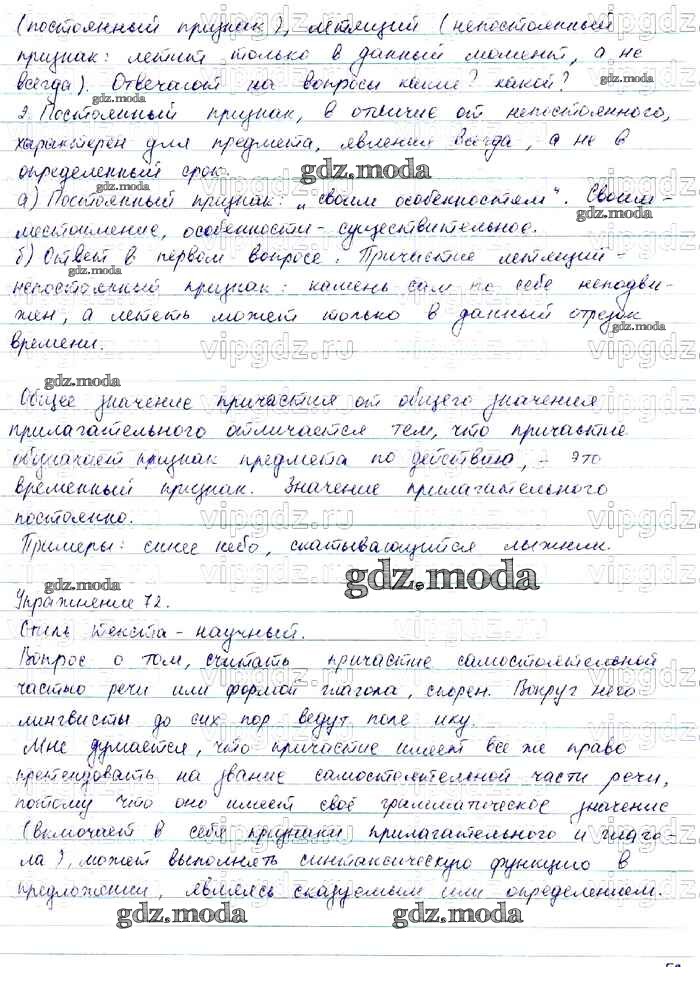 (постоянный признак), летящий (непостоянный
признак: летит только в данный момент, а не
всегда). Отвечают на вопросы какие? какой?
gdz.moda
2. Постоянный признак, в отличие от непостоянного,
характерен для предмета, явления всегда, а не в
определенный срок.
gdz.moda
а) Постоянный признак: „своим особенностям". Своим -
местоимение, особенности - существительное.
б) Ответ в первом вопросе. Причастие летящий -
непостоянный признак: камень сам по себе неподви-
жен, а лететь может только в данный отрезок
времени.
gdz.moda
Общее значение причастия от общего значения
прилагательного отличается тем, что причастие
обозначает признак предмета по действию, - это
временный признак. Значение прилагательного
постоянно.
Примеры: синее небо, скатывающийся лыжник.
gdz.moda
Упражнение 72.
Стиль текста - научный.
Вопрос о том, считать причастие самостоятельной
частью речи или формой глагола, спорен. Вокруг него
лингвисты до сих пор ведут полемику.
Мне думается, что причастие имеет все же право
претендовать на звание самостоятельной части речи,
потому что оно имеет своё грамматическое значение
(включает в себя признаки прилагательного и глаго-
ла), может выполнять синтаксическую функцию в
предложении, являясь сказуемым или определением.
gdz.moda